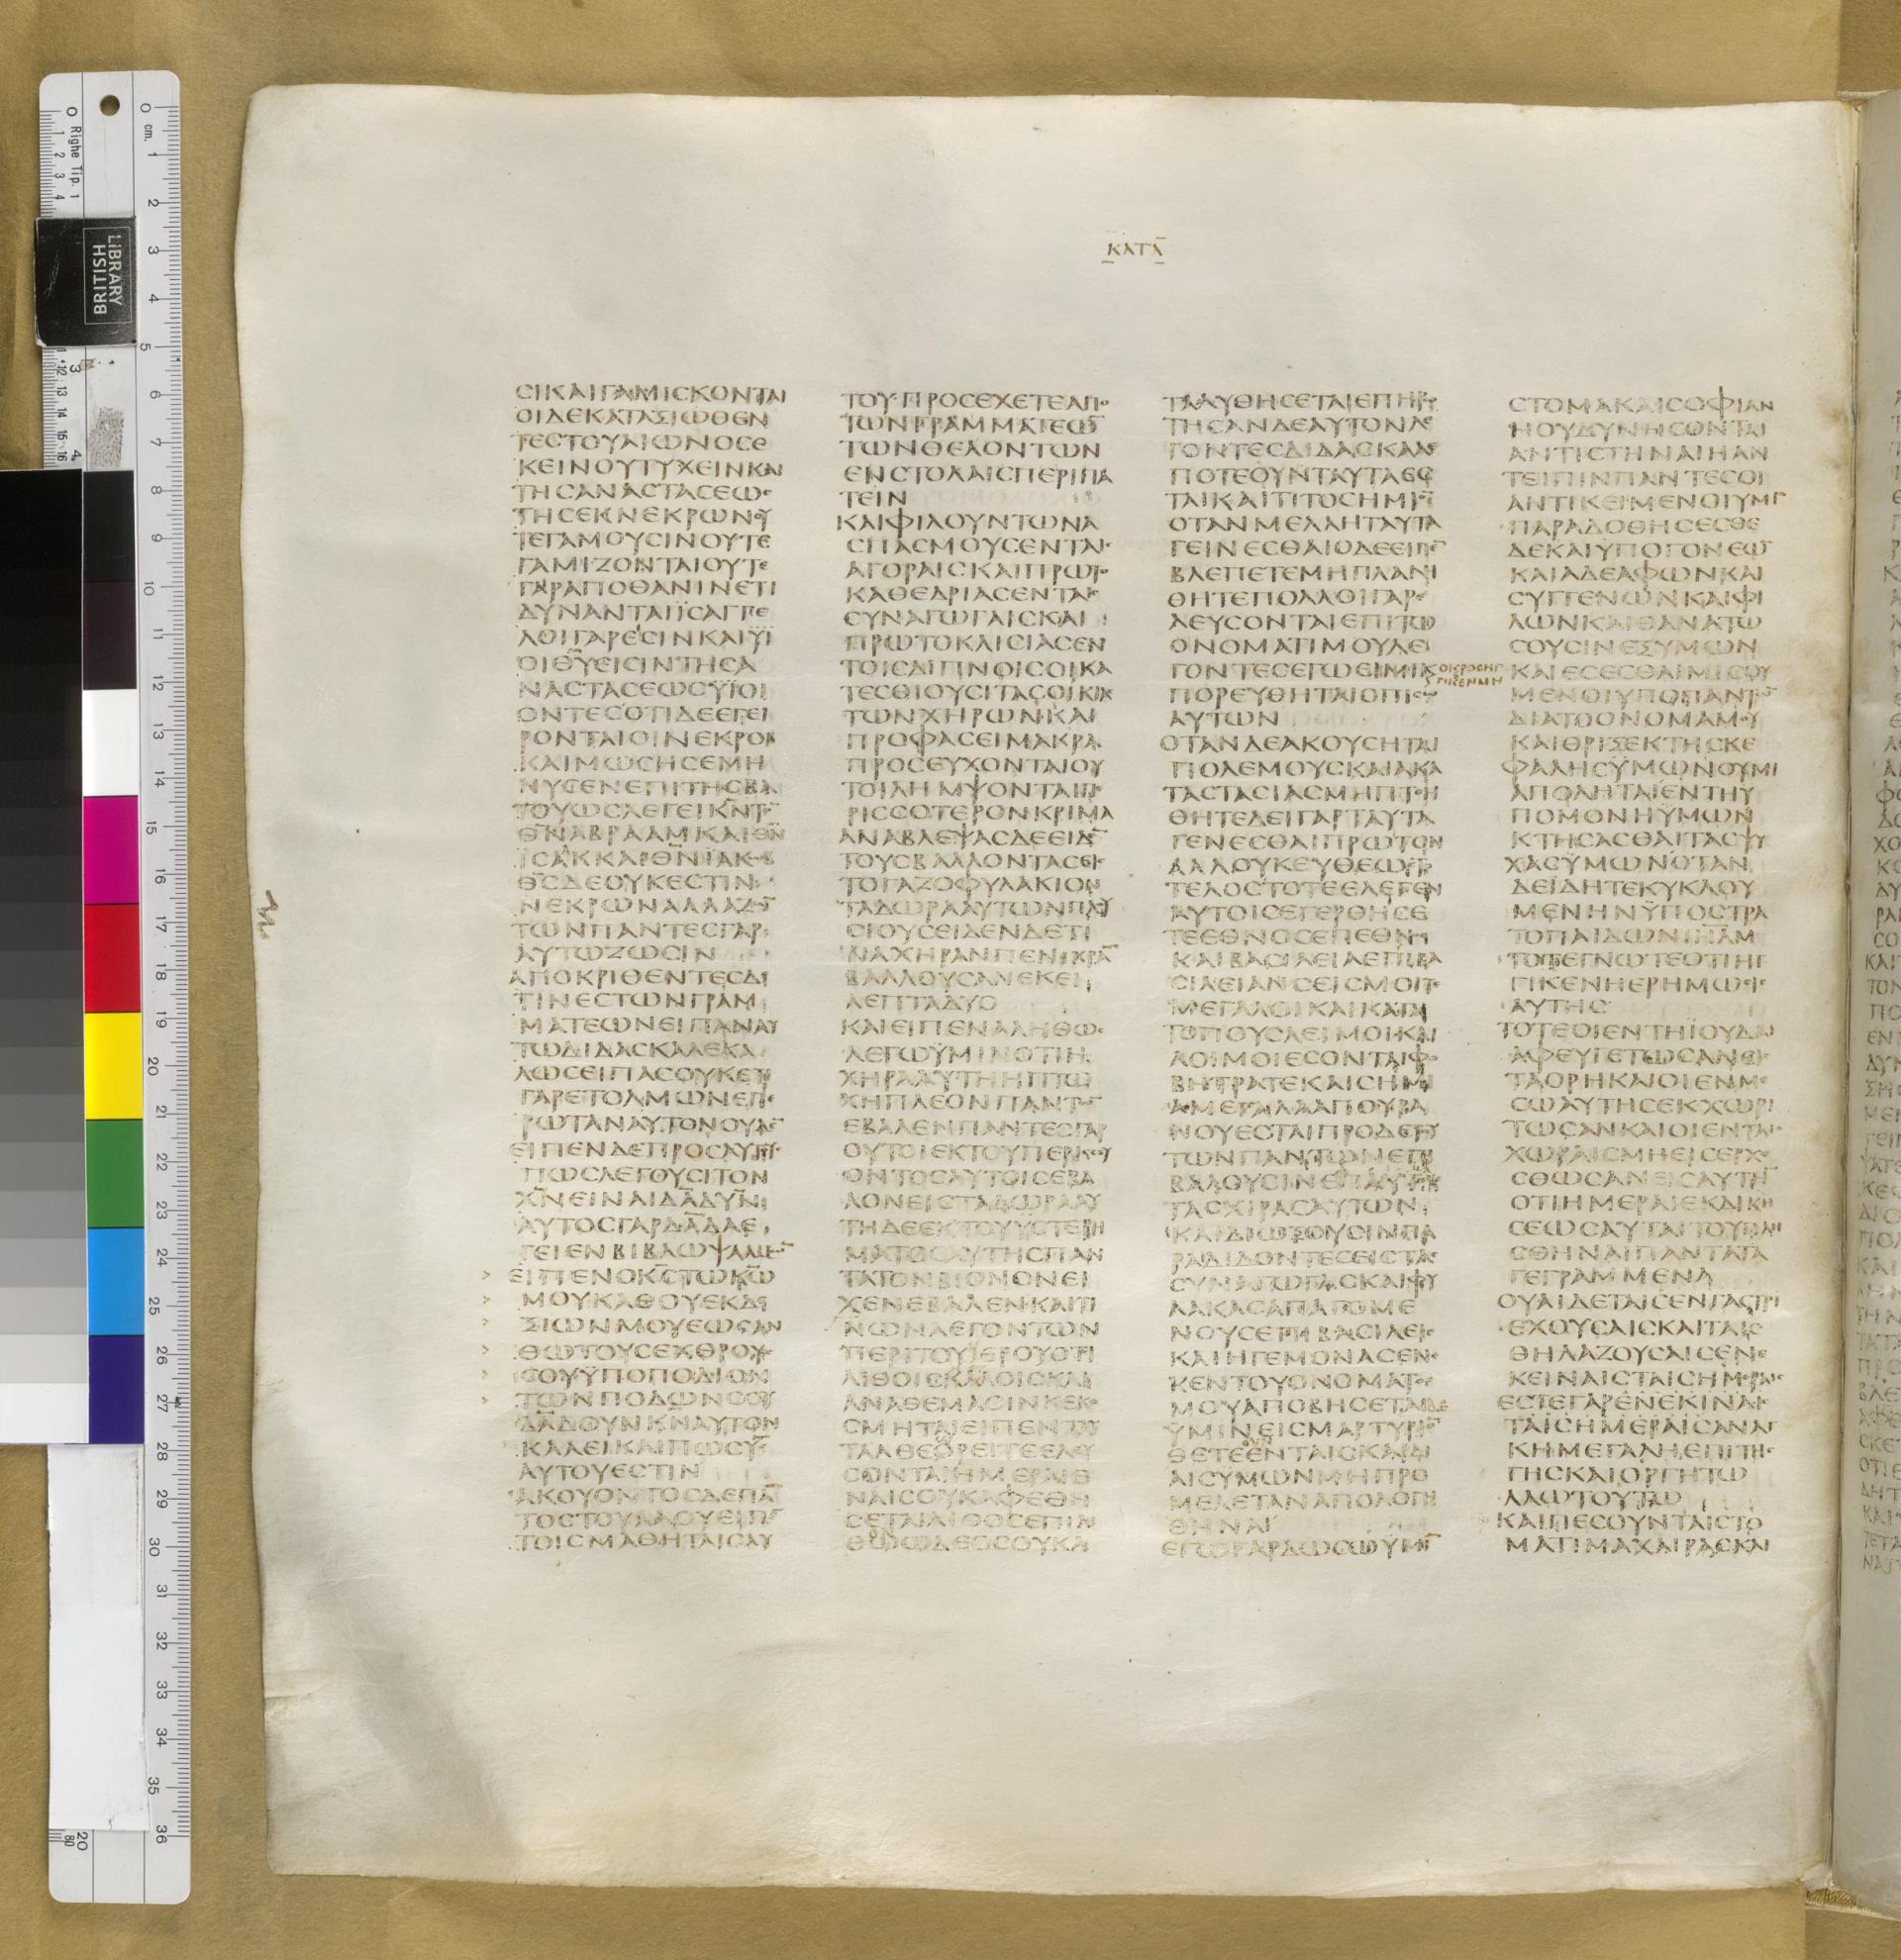 ΚΑΤΑ
ϹΙΚΑΙΓΑΜΙϹΚΟΝΤΑΙ
ΟΙΔΕΚΑΤΑΞΙΩΘΕΝ
ΤΕϹΤΟΥΑΙΩΝΟϹΕ
ΚΕΙΝΟΥΤΥΧΕΙΝΚΑΙ
ΤΗϹΑΝΑϹΤΑϹΕΩϹ
ΤΗϹΕΚΝΕΚΡΩΝΟΥ
ΤΕΓΑΜΟΥϹΙΝΟΥΤΕ
ΓΑΜΙΖΟΝΤΑΙΟΥΤΕ
ΓΑΡΑΠΟΘΑΝΙΝΕΤΙ
ΔΥΝΑΝΤΑΙΪϹΑΓΓΕ
ΛΟΙΓΑΡΕΙϹΙΝΚΑΙΫΙ
ΟΙΘΥΕΙϹΙΝΤΗϹΑ
ΝΑϹΤΑϹΕΩϹΫΪΟΙ
ΟΝΤΕϹΟΤΙΔΕΕΓΕΙ
ΡΟΝΤΑΙΟΙΝΕΚΡΟΙ
ΚΑΙΜΩϹΗϹΕΜΗ
ΝΥϹΕΝΕΠΙΤΗϹΒΑ
ΤΟΥΩϹΛΕΓΕΙΚ̅Ν̅ΤΟ̅
Θ̅Ν̅ΑΒΡΑΑΜΚΑΙΘ̅Ν̅
ΪϹΑΚΚΑΙΘ̅Ν̅ΪΑΚΩΒ
Θ̅Ϲ̅ΔΕΟΥΚΕϹΤΙΝ
ΝΕΚΡΩΝΑΛΛΑΖΩ̅
ΤΩΝΠΑΝΤΕϹΓΑΡ
ΑΥΤΩΖΩϹΙΝ
ΑΠΟΚΡΙΘΕΝΤΕϹΔΕ
ΤΙΝΕϹΤΩΝΓΡΑΜ
ΜΑΤΕΩΝΕΙΠΑΝΑΥ
ΤΩΔΙΔΑϹΚΑΛΕΚΑ
ΛΩϹΕΙΠΑϹΟΥΚΕΤΙ
ΓΑΡΕΤΟΛΜΩΝΕΠΕ
ΡΩΤΑΝΑΥΤΟΝΟΥΔΕ̅
ΕΙΠΕΝΔΕΠΡΟϹΑΥΤΟΥϹ
ΠΩϹΛΕΓΟΥϹΙΤΟΝ
Χ̅Ν̅ΕΙΝΑΙΔ̅Α̅Δ̅ΥΝ̅
ΑΥΤΟϹΓΑΡΔ̅Α̅Δ̅ΛΕ
ΓΕΙΕΝΒΙΒΛΩΨΑΛΜΩ̅
> ΕΙΠΕΝΟΚ̅Ϲ̅ΤΩΚ̅Ω̅
> ΜΟΥΚΑΘΟΥΕΚΔΕ
> ΞΙΩΝΜΟΥΕΩϹΑΝ
> ΘΩΤΟΥϹΕΧΘΡΟΥϹ
> ϹΟΥΫΠΟΠΟΔΙΟΝ
> ΤΩΝΠΟΔΩΝϹΟΥ
Δ̅Α̅Δ̅ΟΥΝΚ̅Ν̅ΑΥΤΟΝ
ΚΑΛΕΙΚΑΙΠΩϹΥ̅Ϲ̅
ΑΥΤΟΥΕϹΤΙΝ
ΑΚΟΥΟΝΤΟϹΔΕΠΑ̅
ΤΟϹΤΟΥΛΑΟΥΕΙΠΕ̅
ΤΟΙϹΜΑΘΗΤΑΙϹΑΥ
ΤΟΥΠΡΟϹΕΧΕΤΕΑΠΟ
ΤΩΝΓΡΑΜΜΑΤΕΩ̅
ΤΩΝΘΕΛΟΝΤΩΝ
ΕΝϹΤΟΛΑΙϹΠΕΡΙΠΑ
ΤΕΙΝ
ΚΑΙΦΙΛΟΥΝΤΩΝΑ
ϹΠΑϹΜΟΥϹΕΝΤΑΙϹ
ΑΓΟΡΑΙϹΚΑΙΠΡΩΤΟ
ΚΑΘΕΔΡΙΑϹΕΝΤΑΙϹ
ϹΥΝΑΓΩΓΑΙϹΚΑΙ
ΠΡΩΤΟΚΛΙϹΙΑϹΕΝ
ΤΟΙϹΔΙΠΝΟΙϹΟΙΚΑ
ΤΕϹΘΙΟΥϹΙΤΑϹΟΙΚΙΑϹ
ΤΩΝΧΗΡΩΝΚΑΙ
ΠΡΟΦΑϹΕΙΜΑΚΡΑ
ΠΡΟϹΕΥΧΟΝΤΑΙΟΥ
ΤΟΙΛΗΜΨΟΝΤΑΙΠΕ
ΡΙϹϹΟΤΕΡΟΝΚΡΙΜΑ
ΑΝΑΒΛΕΨΑϹΔΕΕΙΔΕ̅
ΤΟΥϹΒΑΛΛΟΝΤΑϹΕΙϹ
ΤΟΓΑΖΟΦΥΛΑΚΙΟΝ
ΤΑΔΩΡΑΑΥΤΩΝΠΛΟΥ
ϹΙΟΥϹΕΙΔΕΝΔΕΤΙ
ΝΑΧΗΡΑΝΠΕΝΙΧΡΑ̅
ΒΑΛΛΟΥϹΑΝΕΚΕΙ
ΛΕΠΤΑΔΥΟ
ΚΑΙΕΙΠΕΝΑΛΗΘΩϹ
ΛΕΓΩΫΜΙΝΟΤΙΗ
ΧΗΡΑΑΥΤΗΗΠΤΩ
ΧΗΠΛΕΟΝΠΑΝΤΩ̅
ΕΒΑΛΕΝΠΑΝΤΕϹΓΑΡ
ΟΥΤΟΙΕΚΤΟΥΠΕΡΙϹϹΕΥ
ΟΝΤΟϹΑΥΤΟΙϹΕΒΑ
ΛΟΝΕΙϹΤΑΔΩΡΑΑΥ
ΤΗΔΕΕΚΤΟΥΥϹΤΕΡΗ
ΜΑΤΟϹΑΥΤΗϹΠΑΝ
ΤΑΤΟΝΒΙΟΝΟΝΕΙ
ΧΕΝΕΒΑΛΕΝΚΑΙΤΙ
ΝΩΝΛΕΓΟΝΤΩΝ
ΠΕΡΙΤΟΥΙΕΡΟΥΟΤΙ
ΛΙΘΟΙϹΚΑΛΟΙϹΚΑΙ
ΑΝΑΘΕΜΑϹΙΝΚΕΚΟ
ϹΜΗΤΑΙΕΙΠΕΝΤΑΥ
ΤΑΑΘΕΩΡΕΙΤΕΕΛΕΥ
ϹΟΝΤΑΙΗΜΕΡΑΙΕ
ΝΑΙϹΟΥΚΑΦΕΘΗ
ϹΕΤΑΙΛΙΘΟϹΕΠΙΛΙ
ΘΩΩΔΕΟϹΟΥΚΑ
ΤΑΛΥΘΗϹΕΤΑΙΕΠΗΡΩ
ΤΗϹΑΝΔΕΑΥΤΟΝΛΕ
ΓΟΝΤΕϹΔΙΔΑϹΚΑΛΕ
ΠΟΤΕΟΥΝΤΑΥΤΑΕϹ
ΤΑΙΚΑΙΤΙΤΟϹΗΜΙΟ̅
ΟΤΑΝΜΕΛΛΗΤΑΥΤΑ
ΓΕΙΝΕϹΘΑΙΟΔΕΕΙΠΕ̅
ΒΛΕΠΕΤΕΜΗΠΛΑΝΗ
ΘΗΤΕΠΟΛΛΟΙΓΑΡΕ
ΛΕΥϹΟΝΤΑΙΕΠΙΤΩ
ΟΝΟΜΑΤΙΜΟΥΛΕ
ΓΟΝΤΕϹΕΓΩΕΙΜΙΚΑΙ
ΟΚΕΡΟϹΗΓ
ΓΙΚΕΝΜΗ
ΠΟΡΕΥΘΗΤΑΙΟΠΙϹΩ
ΑΥΤΩΝ
ΟΤΑΝΔΕΑΚΟΥϹΗΤΑΙ
ΠΟΛΕΜΟΥϹΚΑΙΑΚΑ
ΤΑϹΤΑϹΙΑϹΜΗΠΤΟΗ
ΘΗΤΕΔΕΙΓΑΡΤΑΥΤΑ
ΓΕΝΕϹΘΑΙΠΡΩΤΟΝ
ΑΛΛΟΥΚΕΥΘΕΩϹΤΟ
ΤΕΛΟϹΤΟΤΕΕΛΕΓΕΝ
ΑΥΤΟΙϹΕΓΕΡΘΗϹΕ
ΤΕΕΘΝΟϹΕΠΕΘΝΟϹ
ΚΑΙΒΑϹΙΛΕΙΑΕΠΙΒΑ
ϹΙΛΕΙΑΝϹΕΙϹΜΟΙΤΕ
ΜΕΓΑΛΟΙΚΑΙΚΑΤΑ
ΤΟΠΟΥϹΛΕΙΜΟΙΚΑΙ
ΛΟΙΜΟΙΕϹΟΝΤΑΙΦΟ
ΒΗΤΡΑΤΕΚΑΙϹΗΜΙ
ΑΜΕΓΑΛΑΑΠΟΥΡΑ
ΝΟΥΕϹΤΑΙΠΡΟΔΕΤΟΥ
ΤΩΝΠΑΝΤΩΝΕΠΙ
ΒΑΛΟΥϹΙΝΕΠΑΥΤΟΥϹ
ΤΑϹΧΙΡΑϹΑΥΤΩΝ
ΚΑΙΔΙΩΞΟΥϹΙΝΠΑ
ΡΑΔΙΔΟΝΤΕϹΕΙϹΤΑϹ
ϹΥΝΑΓΩΓΑϹΚΑΙΦΥ
ΛΑΚΑϹΑΠΑΓΟΜΕ
ΝΟΥϹΕΠΙΒΑϹΙΛΕΙϹ
ΚΑΙΗΓΕΜΟΝΑϹΕΝΕ
ΚΕΝΤΟΥΟΝΟΜΑΤΟϹ
ΜΟΥΑΠΟΒΗϹΕΤΑΙΔΕ
ΫΜΙΝΕΙϹΜΑΡΤΥΡΙΟ̅
ΘΕΤΕΕΝΤΑΙϹΚΑΡΔΙ
ΑΙϹΥΜΩΝΜΗΠΡΟ
ΜΕΛΕΤΑΝΑΠΟΛΟΓΗ
ΘΗΝΑΙ
ΕΓΩΓΑΡΔΩϹΩΫΜΙ̅
ϹΤΟΜΑΚΑΙϹΟΦΙΑΝ
ΗΟΥΔΥΝΗϹΟΝΤΑΙ
ΑΝΤΙϹΤΗΝΑΙΗΑΝ
ΤΕΙΠΙΝΠΑΝΤΕϹΟΙ
ΑΝΤΙΚΕΙΜΕΝΟΙΥΜΙ̅
ΠΑΡΑΔΟΘΗϹΕϹΘΕ
ΔΕΚΑΙΫΠΟΓΟΝΕΩ̅
ΚΑΙΑΔΕΛΦΩΝΚΑΙ
ϹΥΓΓΕΝΩΝΚΑΙΦΙ
ΛΩΝΚΑΙΘΑΝΑΤΩ
ϹΟΥϹΙΝΕΞΥΜΩΝ
ΚΑΙΕϹΕϹΘΑΙΜΙϹΟΥ
ΜΕΝΟΙΥΠΟΠΑΝΤΩ̅
ΔΙΑΤΟΟΝΟΜΑΜΟΥ
ΚΑΙΘΡΙΞΕΚΤΗϹΚΕ
ΦΑΛΗϹΫΜΩΝΟΥΜΗ
ΑΠΟΛΗΤΑΙΕΝΤΗΥ
ΠΟΜΟΝΗΫΜΩΝ
ΚΤΗϹΑϹΘΑΙΤΑϹΨΥ
ΧΑϹΫΜΩΝΟΤΑΝ
ΔΕΪΔΗΤΕΚΥΚΛΟΥ
ΜΕΝΗΝΫΠΟϹΤΡΑ
ΤΟΠΑΙΔΩΝΙ̅Η̅Λ̅Μ
ΤΟΤΕΓΝΩΤΕΟΤΙΗΓ
ΓΙΚΕΝΗΕΡΗΜΩϹΙϹ
ΑΥΤΗϹ
ΤΟΤΕΟΙΕΝΤΗΪΟΥΔΑΙ
ΑΦΕΥΓΕΤΩϹΑΝΕΙϹ
ΤΑΟΡΗΚΑΙΟΙΕΝΜΕ
ϹΩΑΥΤΗϹΕΚΧΩΡΙ
ΤΩϹΑΝΚΑΙΟΙΕΝΤΑΙϹ
ΧΩΡΑΙϹΜΗΕΙϹΕΡΧΕ
ϹΘΩϹΑΝΕΙϹΑΥΤΗ̅
ΟΤΙΗΜΕΡΑΙΕΚΔΙΚΗ
ϹΕΩϹΑΥΤΑΙΤΟΥΠΛΗ
ϹΘΗΝΑΙΠΑΝΤΑΤΑ
ΓΕΓΡΑΜΜΕΝΑ
ΟΥΑΙΔΕΤΑΙϹΕΝΓΑϹΤΡΙ
ΕΧΟΥϹΑΙϹΚΑΙΤΑΙϹ
ΘΗΛΑΖΟΥϹΑΙϹΕΝΕ
ΚΕΙΝΑΙϹΤΑΙϹΗΜΕΡΑΙϹ
ΕϹΤΕΓΑΡΕΝΕΚΙΝΑΙϹ
ΤΑΙϹΗΜΕΡΑΙϹΑΝΑΓ
ΚΗΜΕΓΑΛΗΕΠΙΤΗϹ
ΓΗϹΚΑΙΟΡΓΗΤΩ
ΛΑΩΤΟΥΤΩ
ΚΑΙΠΕϹΟΥΝΤΑΙϹΤΟ
ΜΑΤΙΜΑΧΑΙΡΑϹΚΑΙ
BRITISH
LIBRARY